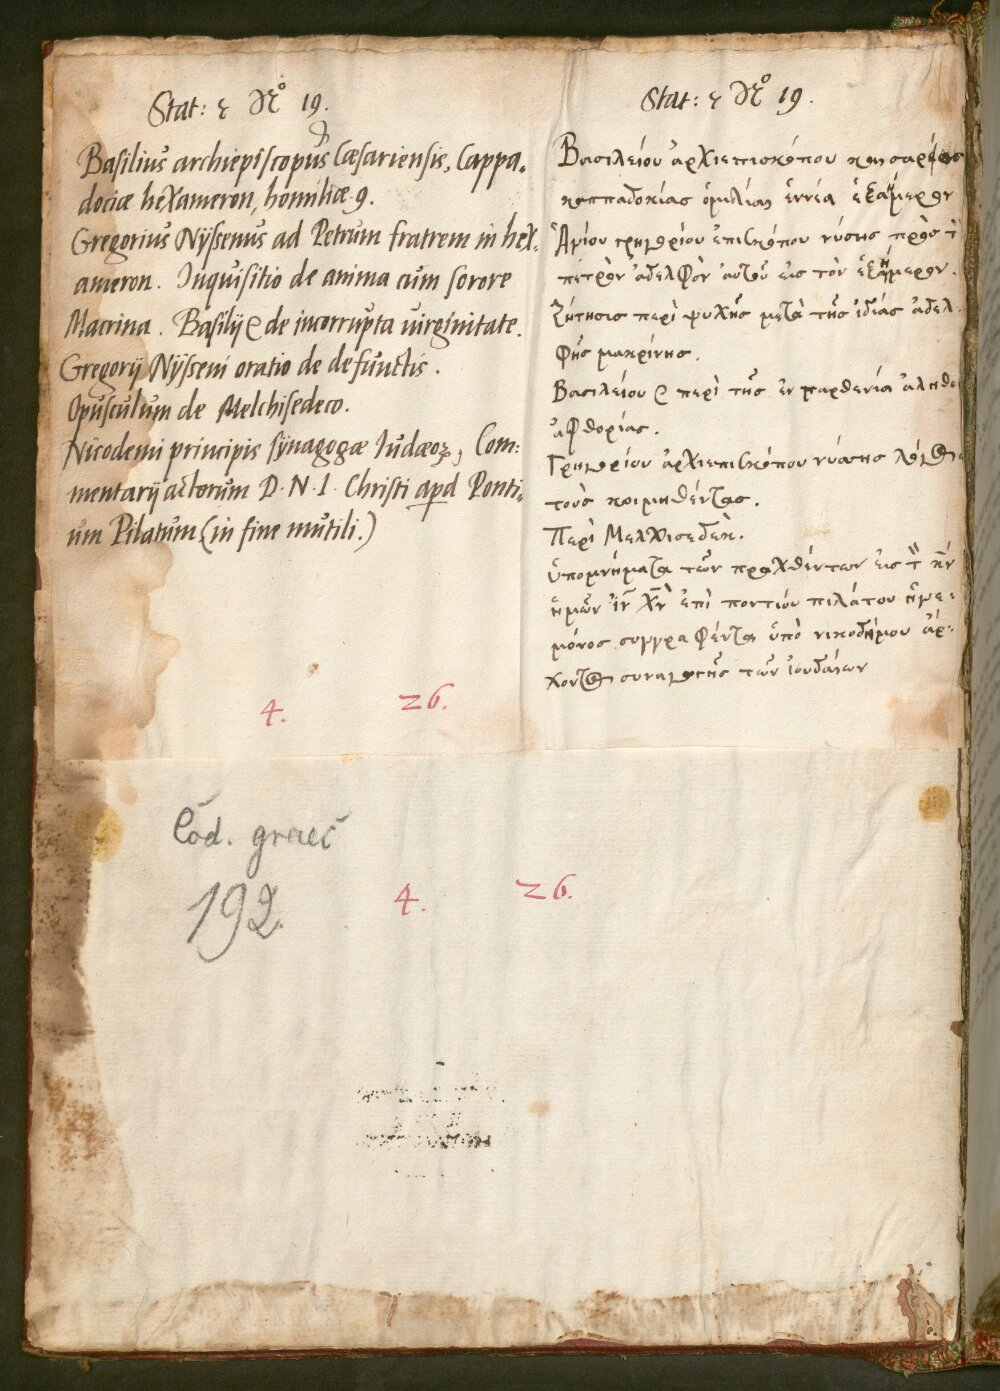 Stat: 2 No 19.
Basilius archiepiscopus Cæsariensis, Cappa-
dociæ hexameron, homiliæ 9.
Gregorius Nyssenus ad Petrum fratrem in hex-
ameron. Inquisitio de anima cum sorore
Macrina. Basilij de incorrupta virginitate.
Gregorij Nysseni oratio de defunctis.
Opusculum de Melchisedeco.
Nicodemi principis synagogæ Iudæoꝝ, Com-
mentarij actorum D. N. I. Christi apd Ponti-
um Pilatum (in fine mutili.)
4. 26.
Stat: 2 No 19.
Βασιλείου ἀρχιεπισκόπου καισαρείας
καππαδοκίας ὁμιλίαι ἐννέα ἑξαήμερον
Ἁγίου γρηγορίου ἐπισκόπου νύσης πρὸς τ̄
πέτρον ἀδελφὸν αὐτοῦ εἰς τὸν ἑξαήμερον.
Ζήτησις περὶ ψυχῆς μετὰ τῆς ἰδίας ἀδελ-
φῆς μακρίνης.
Βασιλείου περὶ τῆς ἐν παρθενία ἀληθοῦς
ἀφθορίας.
Γρηγορίου ἀρχιεπισκόπου νύσσης λόγος
τοὺς κοιμηθέντας.
Περὶ Μελχισεδὲκ.
ὑπομνήματα τῶν πραχθέντων εἰς τ̄ κ̄ν
ἡμῶν ἰν̄ χν̄ ἐπὶ ποντίου πιλάτου ἡγε-
μόνος συγγραφέντα ὑπὸ νικοδήμου ἄρ-
χοντος συναγωγῆς τῶν ἰουδαίων
Cod. graec
192.
4. 26.